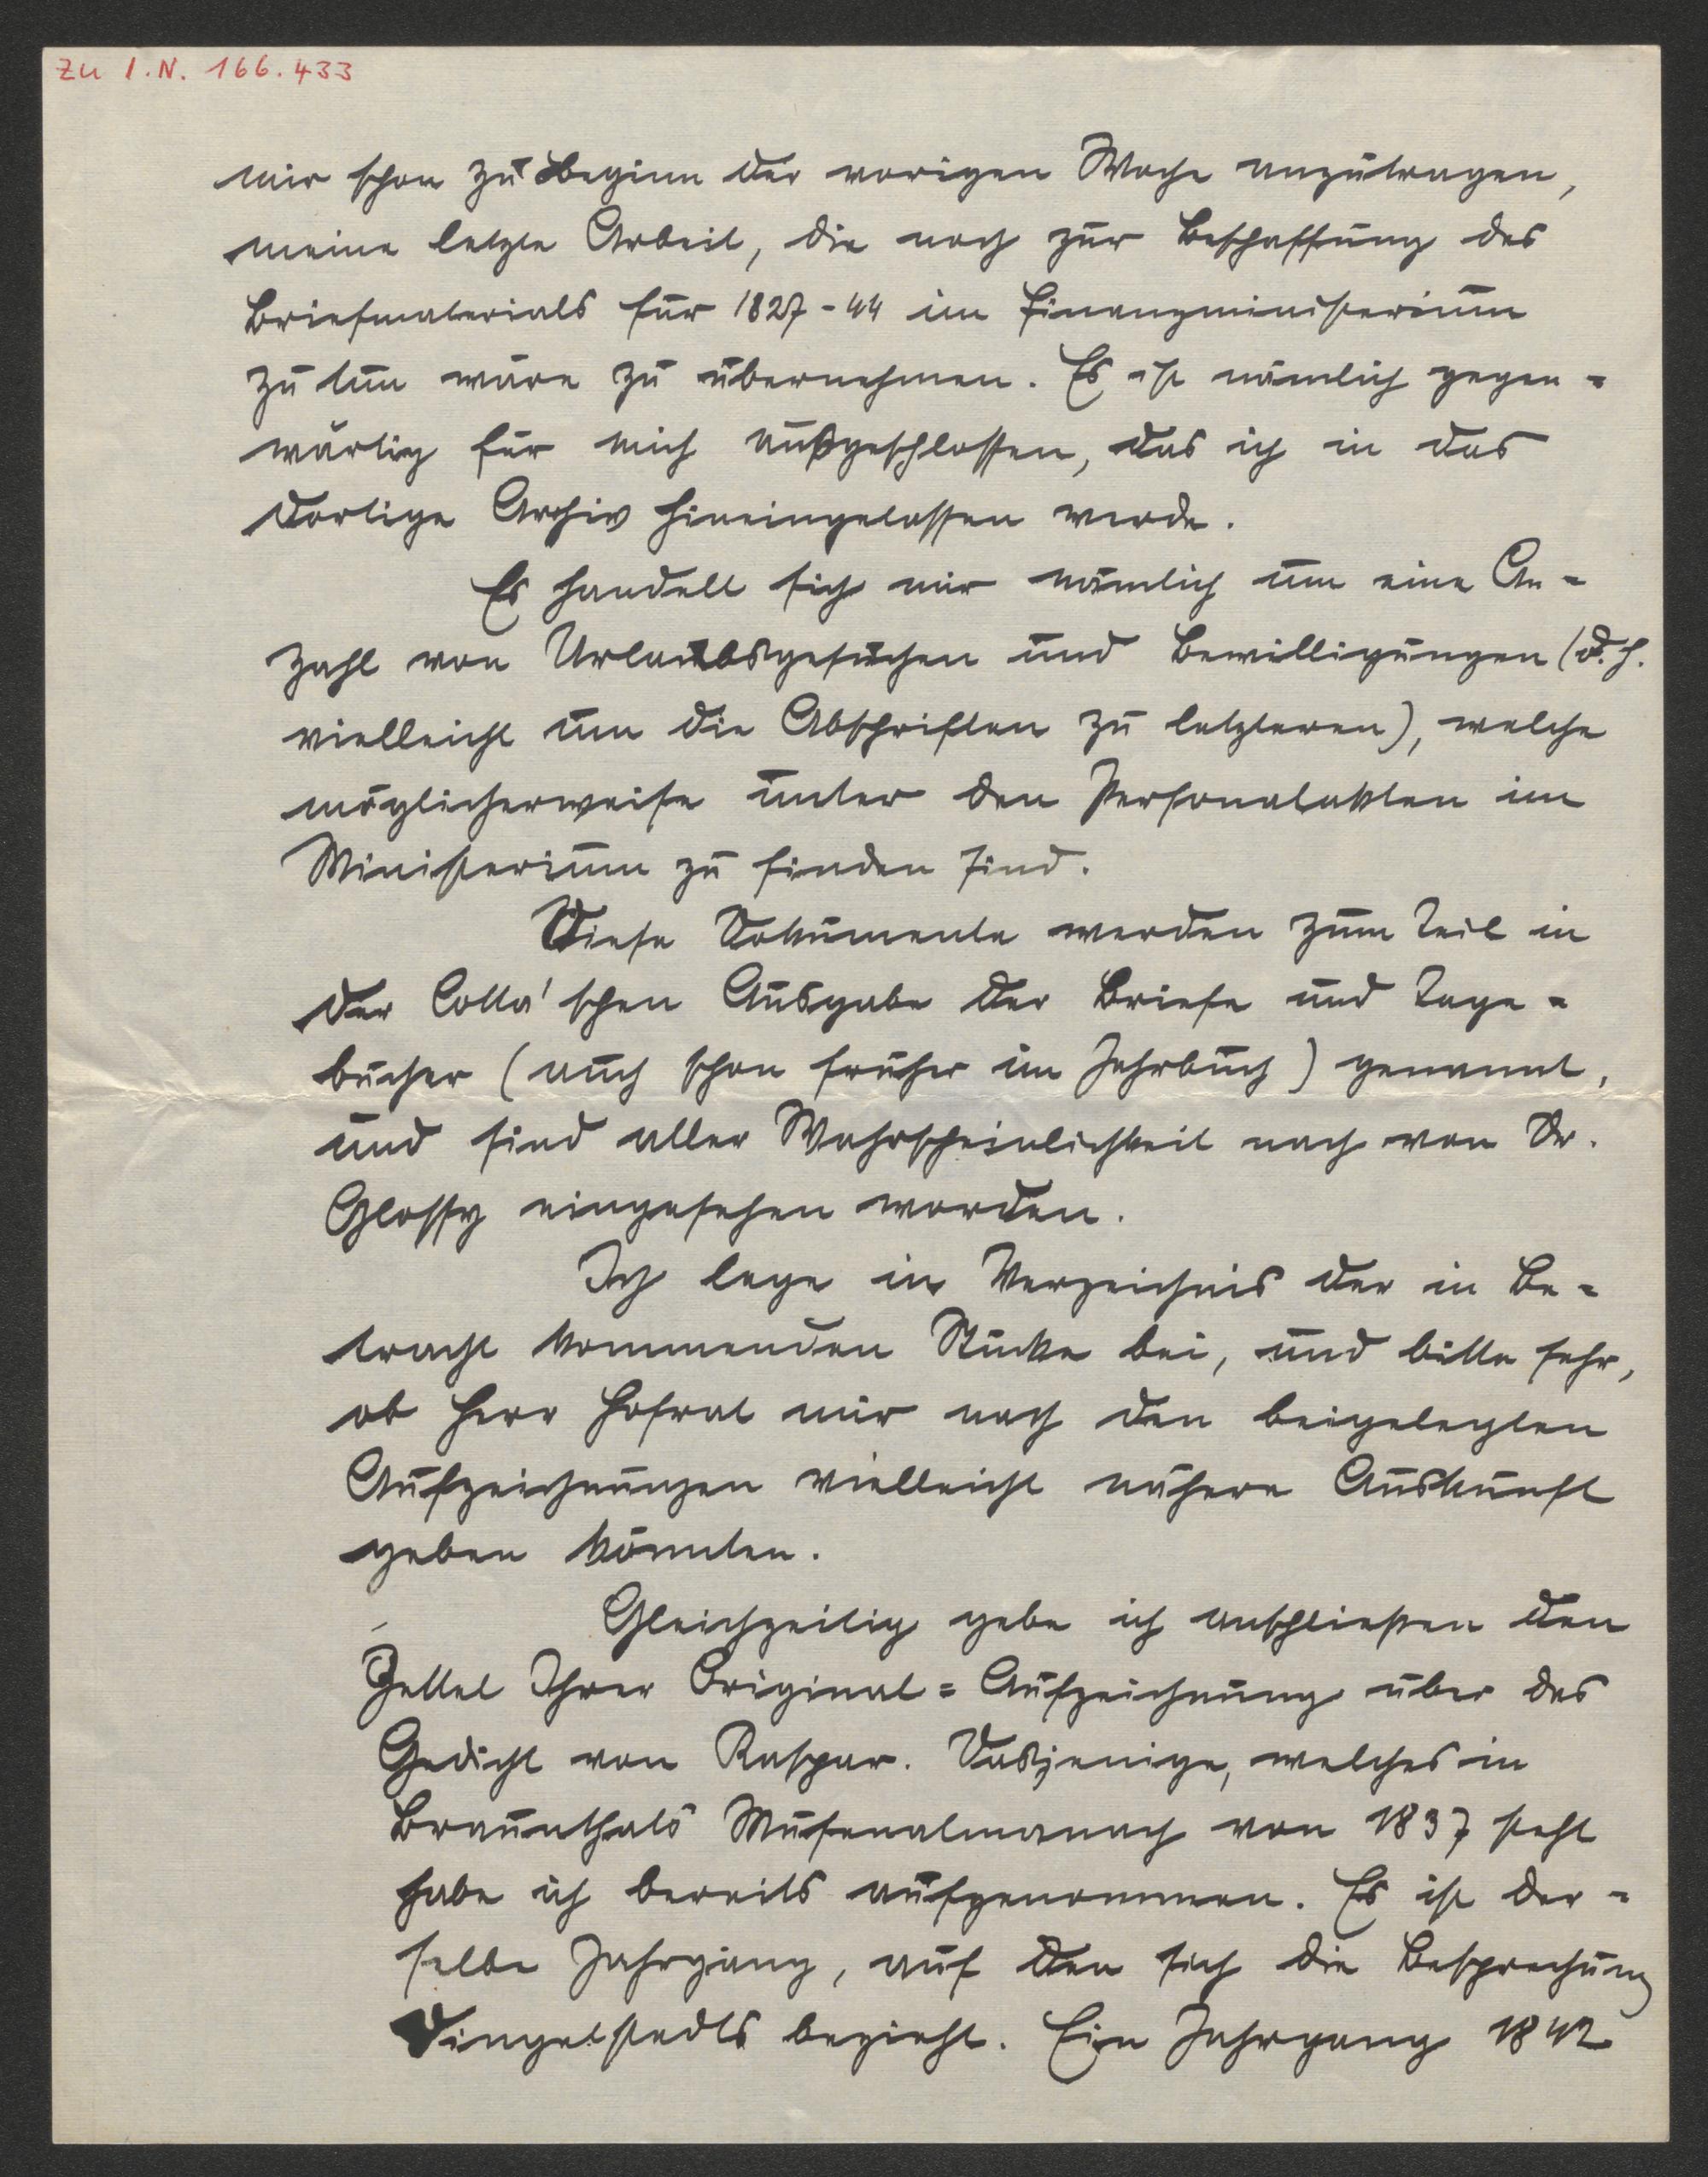 Zu I.N. 166.433
mir schon zu Beginn der vorigen Woche anzutragen,
meine letzte Arbeit, die noch zur Beschaffung des
Briefmaterials für 1827-44 im Finanzministerium
zu tun wäre zu übernehmen. Es ist nämlich gegen=
wärtig für mich außgeschlossen, das ich in das
dortige Archiv hineingelassen werde.
Es handelt sich mir nämlich um eine An=
zahl von Urlaubsgesuchen und Bewilligungen (d. h.
vielleicht um die Abschriften zu letzteren), welche
möglicherweise unter den Personalakten im
Ministerium zu finden sind.
Diese Dokumente werden zum Teil in
der Cotta'schen Ausgabe der Briefe und Tage=
bücher (auch schon früher im Jahrbuch) genannt,
und sind aller Wahrscheinlichkeit nach von Dr.
Glossy eingesehen worden.
Ich lege ein Verzeichnis der in Be=
tracht kommenden Stücke bei, und bitte sehr,
ob Herr Hofrat mir nach den beigelegten
Aufzeichnungen vielleicht nähere Auskunft
geben könnten.
Gleichzeitig gebe ich anschließen den
Zettel Ihrer Original=Aufzeichnung über das
Gedicht von Kaspar. Dasjenige, welches in
Braunthals Musenalmanach von 1837 steht
habe ich bereits aufgenommen. Es ist der=
selbe Jahrgang, auf den sich die Besprechung
Dingelstedts bezieht. Ein Jahrgang 1842